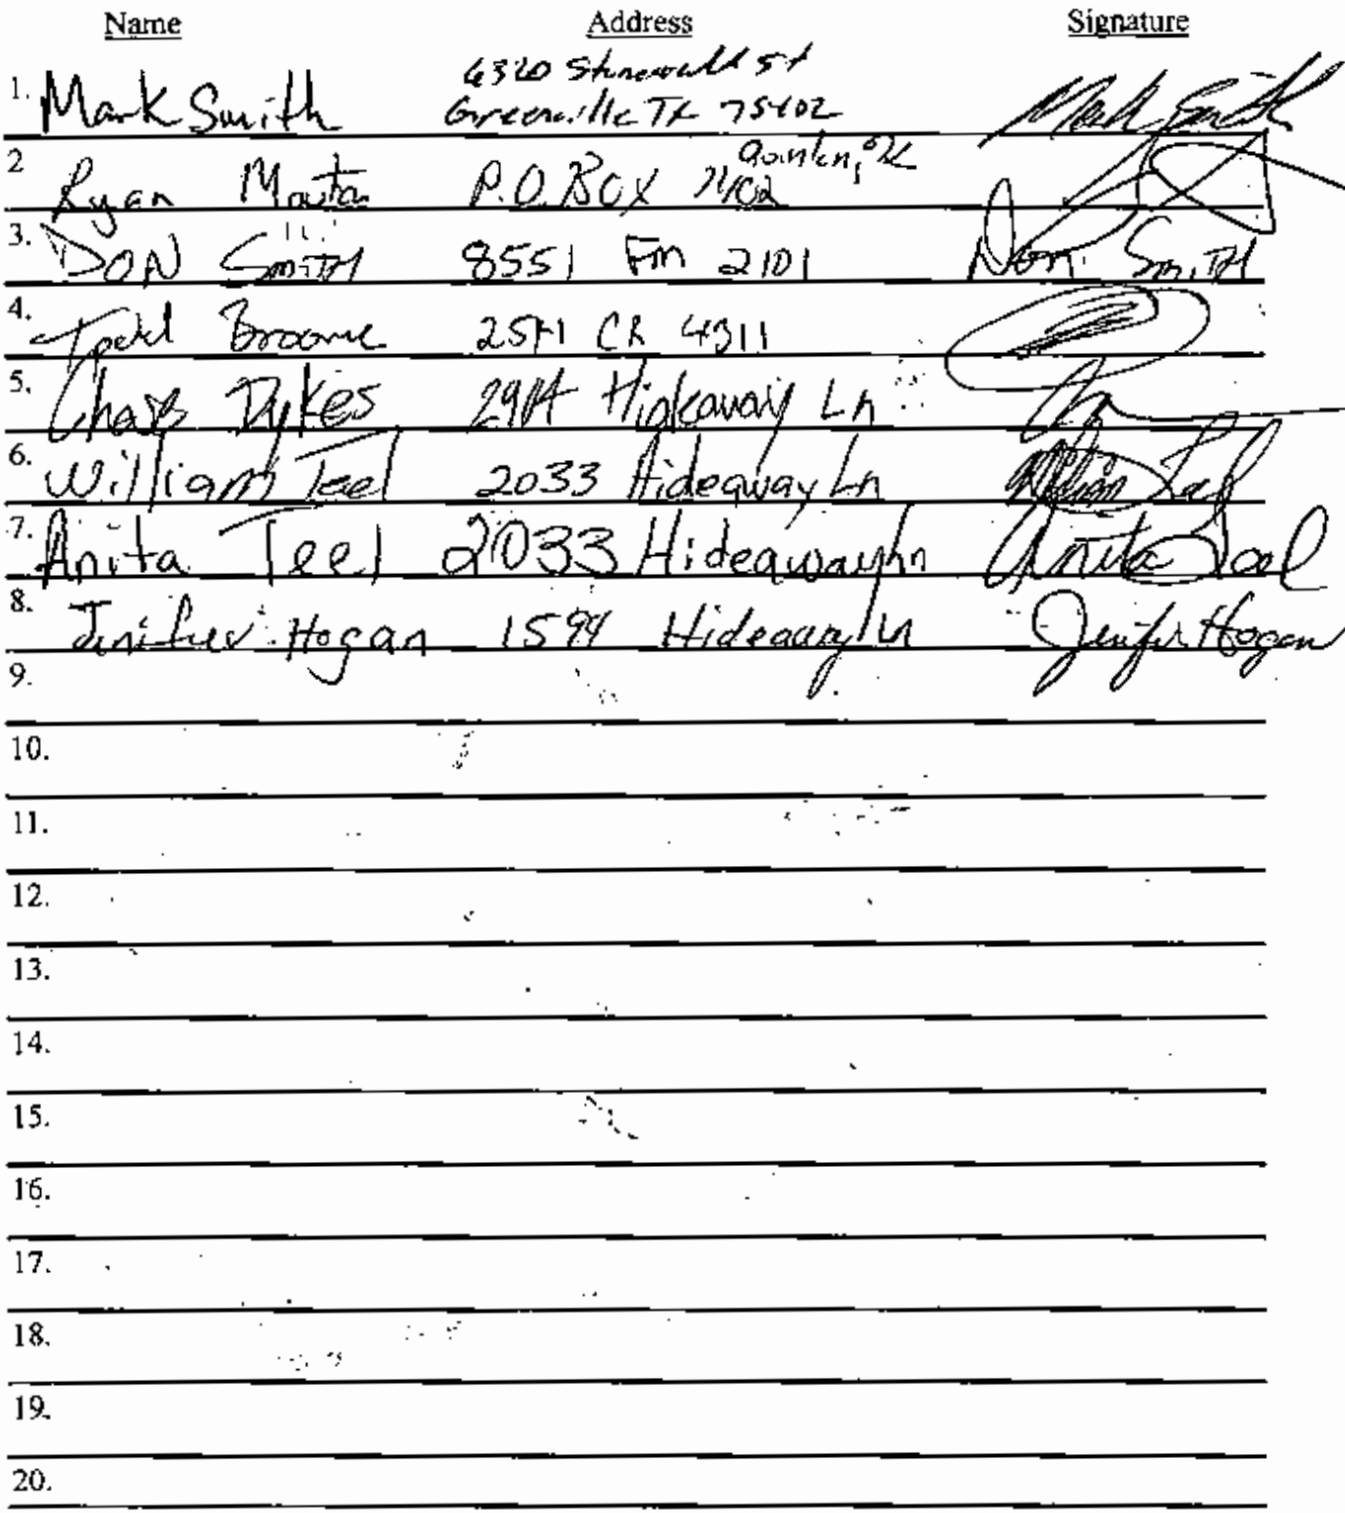 Name Address Signature
1. Mark Smith 6320 Stonewall St Greenville TX 75402 Mark Smith
2 Ryan P.O. Box
3. DON SmiTH 8551 Fm 2101 Don SmiTH
4. Broome CR 4311
5. Dykes Ln
6. William Teel 2033 Hideaway Ln William Teel
7. Anita Teel 2033 Hideaway Ln Anita Teel
8. Jenifer Hogan 1594 Hideaway Ln Jenifer Hogan
9.
10.
11.
12.
13.
14.
15.
16.
17.
18.
19.
20.